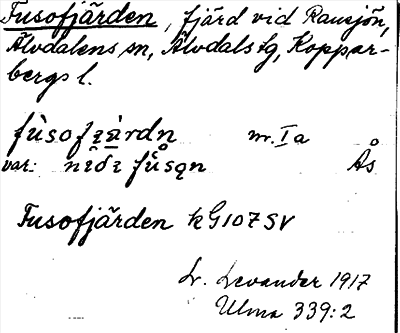 Fusofjärden, fjärd vid Rausjön,
Älvdalens sn, Älvdals tg, Koppar-
bergs l.
fùsofıä̀rdn nr. Ia
var: nıðı fǘsǫn Ås
Fusofjärden kG107SV
L. Levander 1917
Ulma 339:2